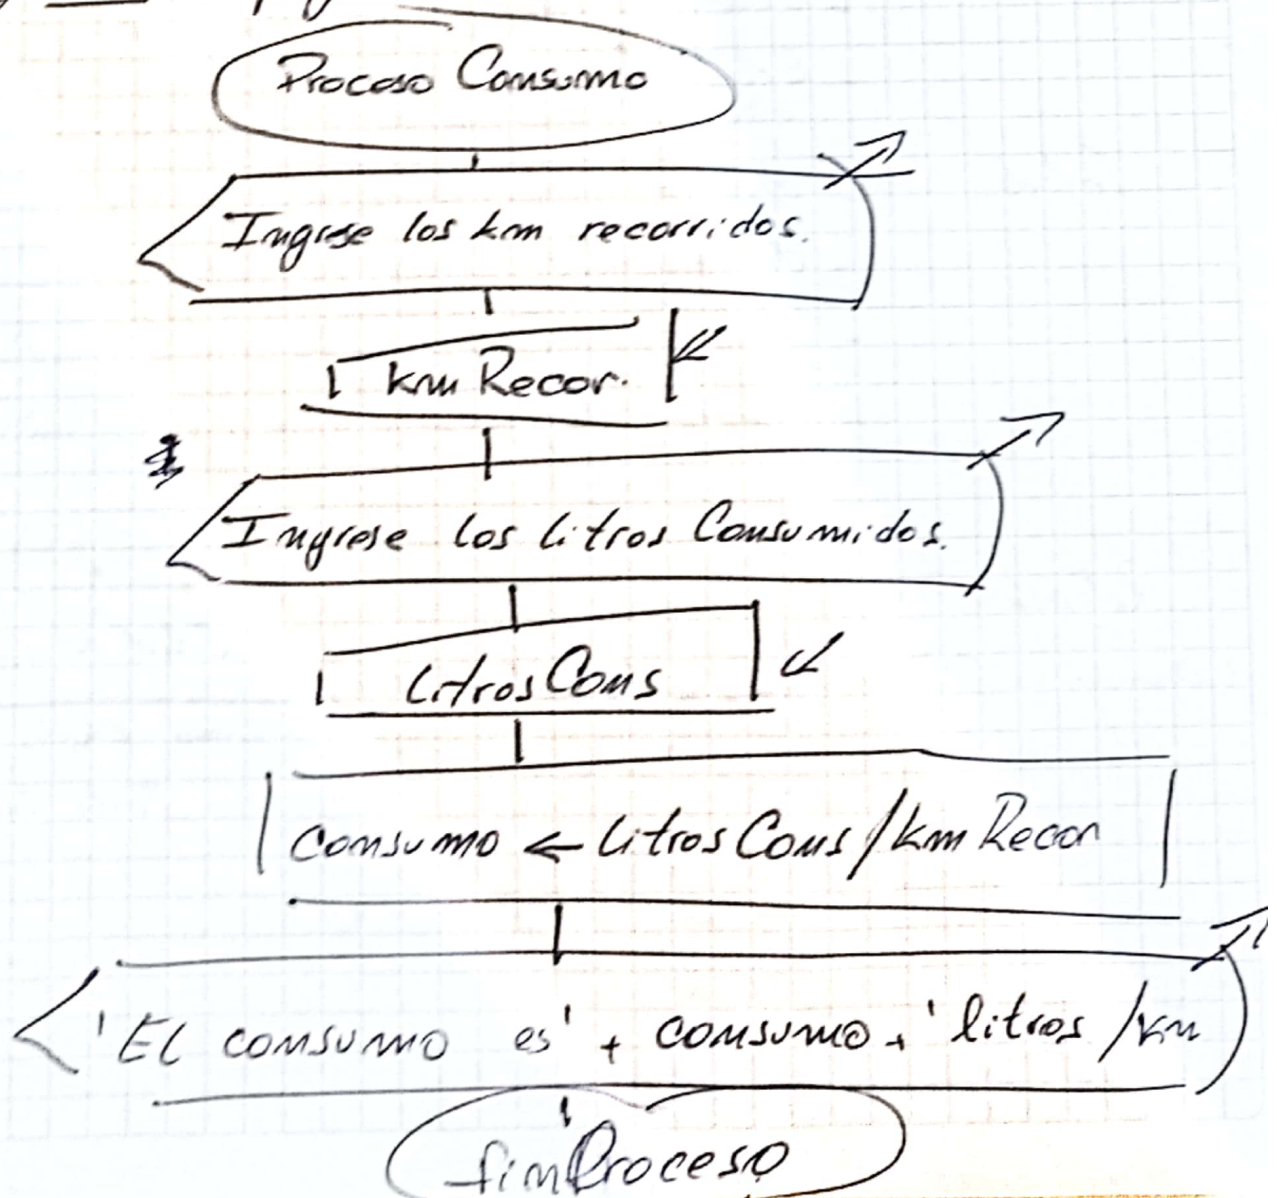 Proceso Consumo
Ingrese los km recorridos.
km Recor.
Ingrese los litros Consumidos.
litrosCons
consumo ← litrosCons/kmRecor
'El consumo es' + consumo + 'litros /km
finProceso